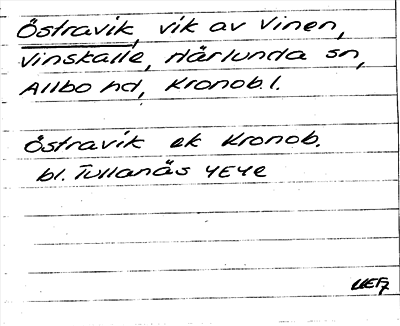 Östravik, vik av Vinen,
Vinskalle, Härlunda sn,
Allbo hd, Kronob. l.
Östravik ek Kronob.
bl. Tullanäs 4E4e